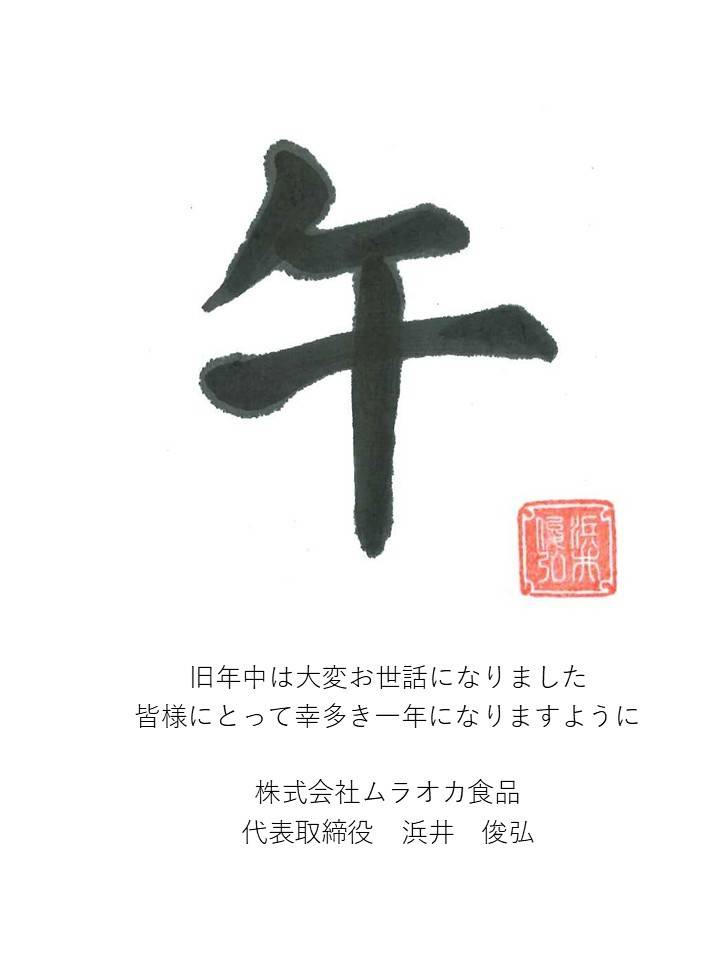 午
浜井
俊弘
旧年中は大変お世話になりました
皆様にとって幸多き一年になりますように
株式会社ムラオカ食品
代表取締役　浜井　俊弘